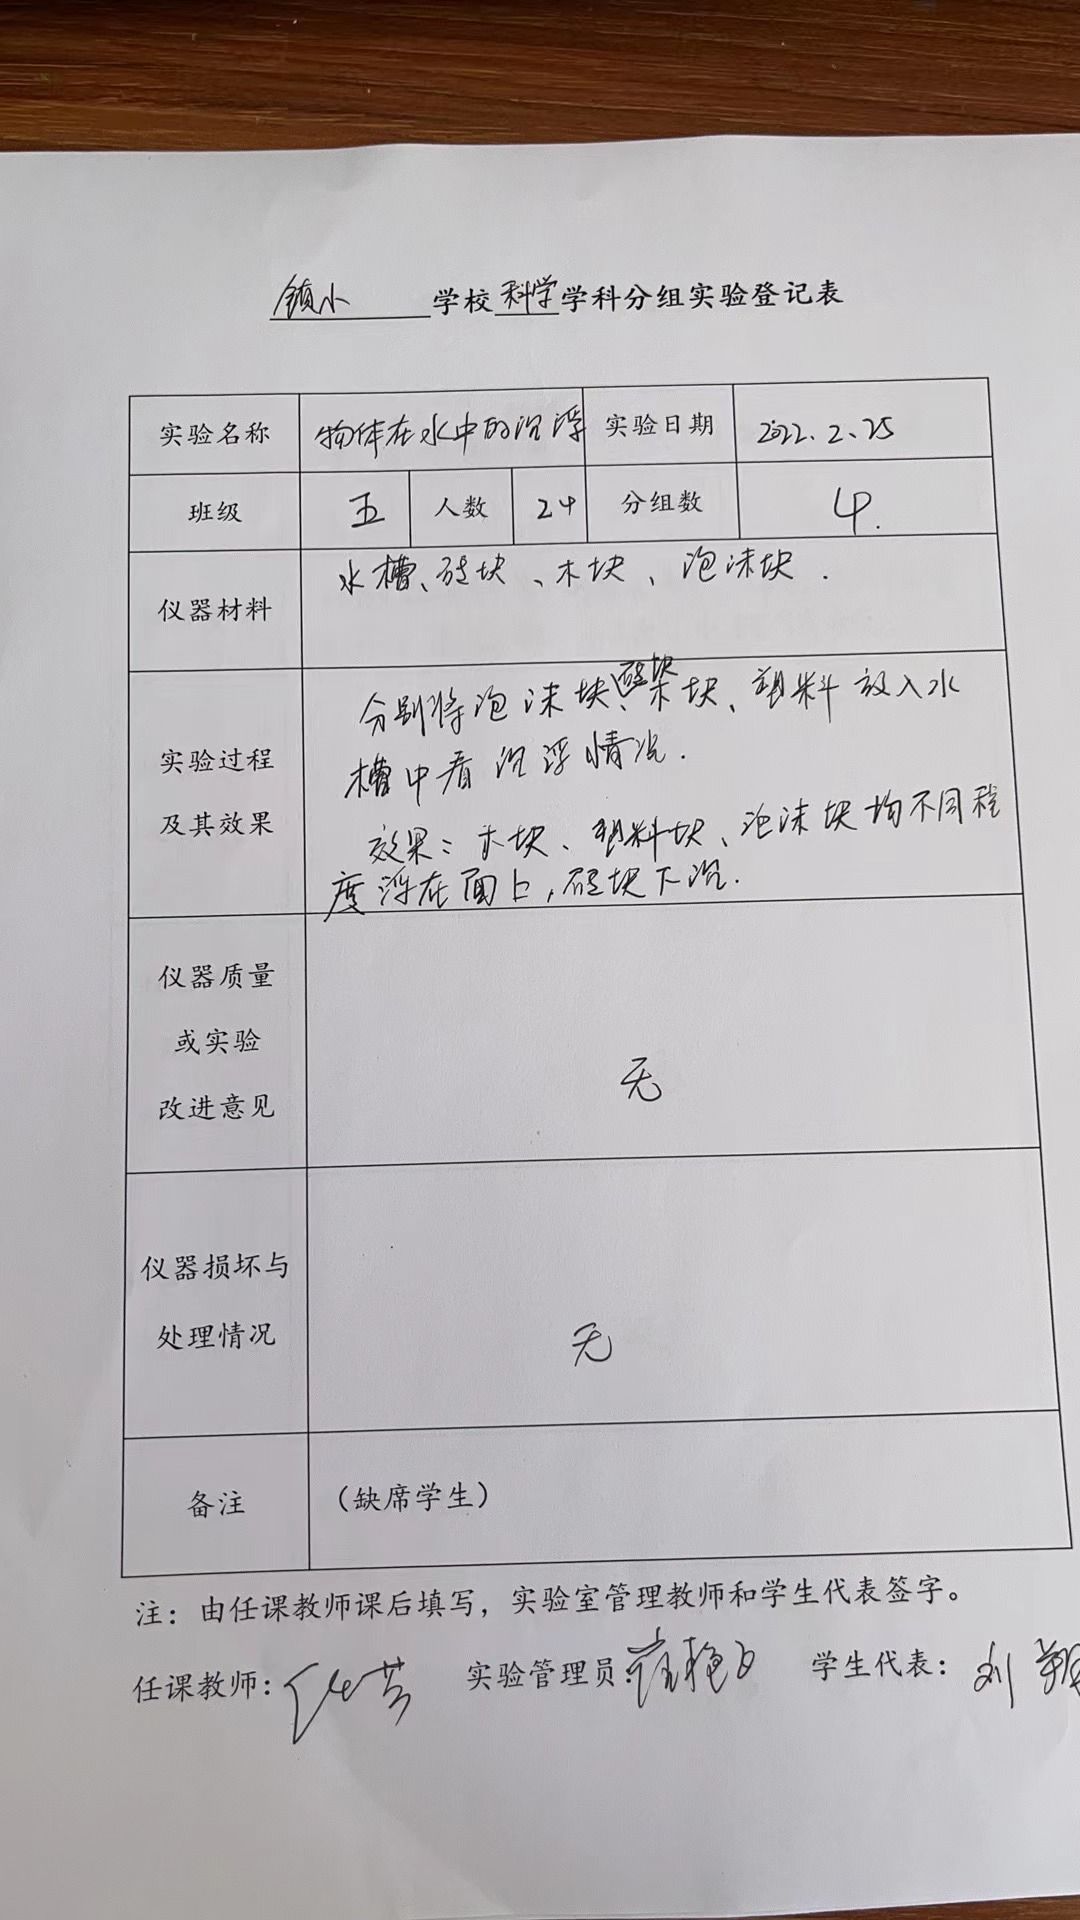 镇小 学校 科学 学科分组实验登记表
实验名称 物体在水中的沉浮 实验日期 2022.2.25
班级 五 人数 24 分组数 4.
仪器材料 水槽、砖块、木块、泡沫块.
实验过程及其效果
分别将泡沫块、砖块、木块、塑料放入水
槽中看沉浮情况.
效果:木块、塑料块、泡沫块均不同程
度浮在面上,砖块下沉.
仪器质量
或实验
改进意见
无
仪器损坏与
处理情况
无
备注 (缺席学生)
注:由任课教师课后填写,实验室管理教师和学生代表签字。
任课教师: 实验管理员: 学生代表: 刘